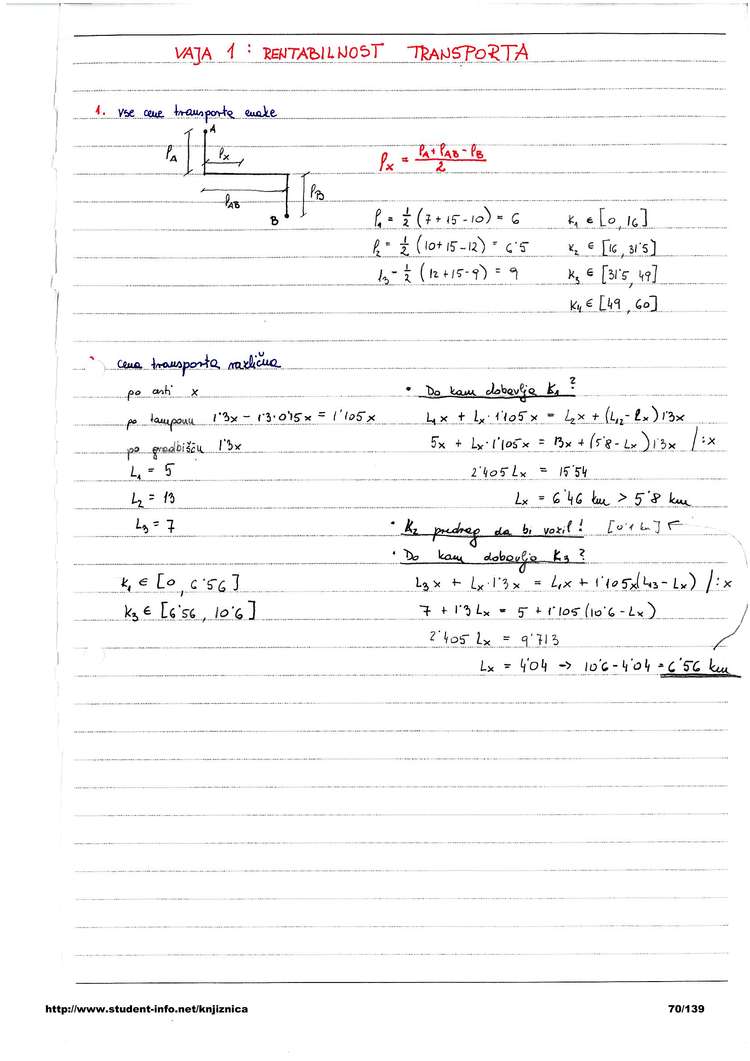 VAJA 1 : RENTABILNOST TRANSPORTA
1. vse cene transporta enake
A
l_A
l_x
l_AB
l_B
B
l_x = (l_A + l_AB - l_B) / 2
l_1 = 1/2 (7 + 15 - 10) = 6
K_1 ∈ [0, 16]
l_2 = 1/2 (10 + 15 - 12) = 6'5
K_2 ∈ [16, 31'5]
l_3 = 1/2 (12 + 15 - 9) = 9
K_3 ∈ [31'5, 49]
K_4 ∈ [49, 60]
cena transporta različna
po cesti x
po tamponu 1'3x - 1'3·0'15x = 1'105x
po gradbišču 1'3x
L_1 = 5
L_2 = 13
L_3 = 7
K_1 ∈ [0, 6'56]
K_3 ∈ [6'56, 10'6]
• Do kam dobavlja K_1 ?
L_1x + L_x·1'105x = L_2x + (L_12 - L_x) 1'3x
5x + L_x·1'105x = 13x + (5'8 - L_x) 1'3x /:x
2'405 L_x = 15'54
L_x = 6'46 km > 5'8 km
• K_2 predrag da bi vozil !
• Do kam dobavlja K_3 ?
L_3x + L_x·1'3x = L_1x + 1'105x(L_13 - L_x) /:x
7 + 1'3 L_x = 5 + 1'105 (10'6 - L_x)
2'405 L_x = 9'713
L_x = 4'04 → 10'6 - 4'04 = 6'56 km
http://www.student-info.net/knjiznica
70/139